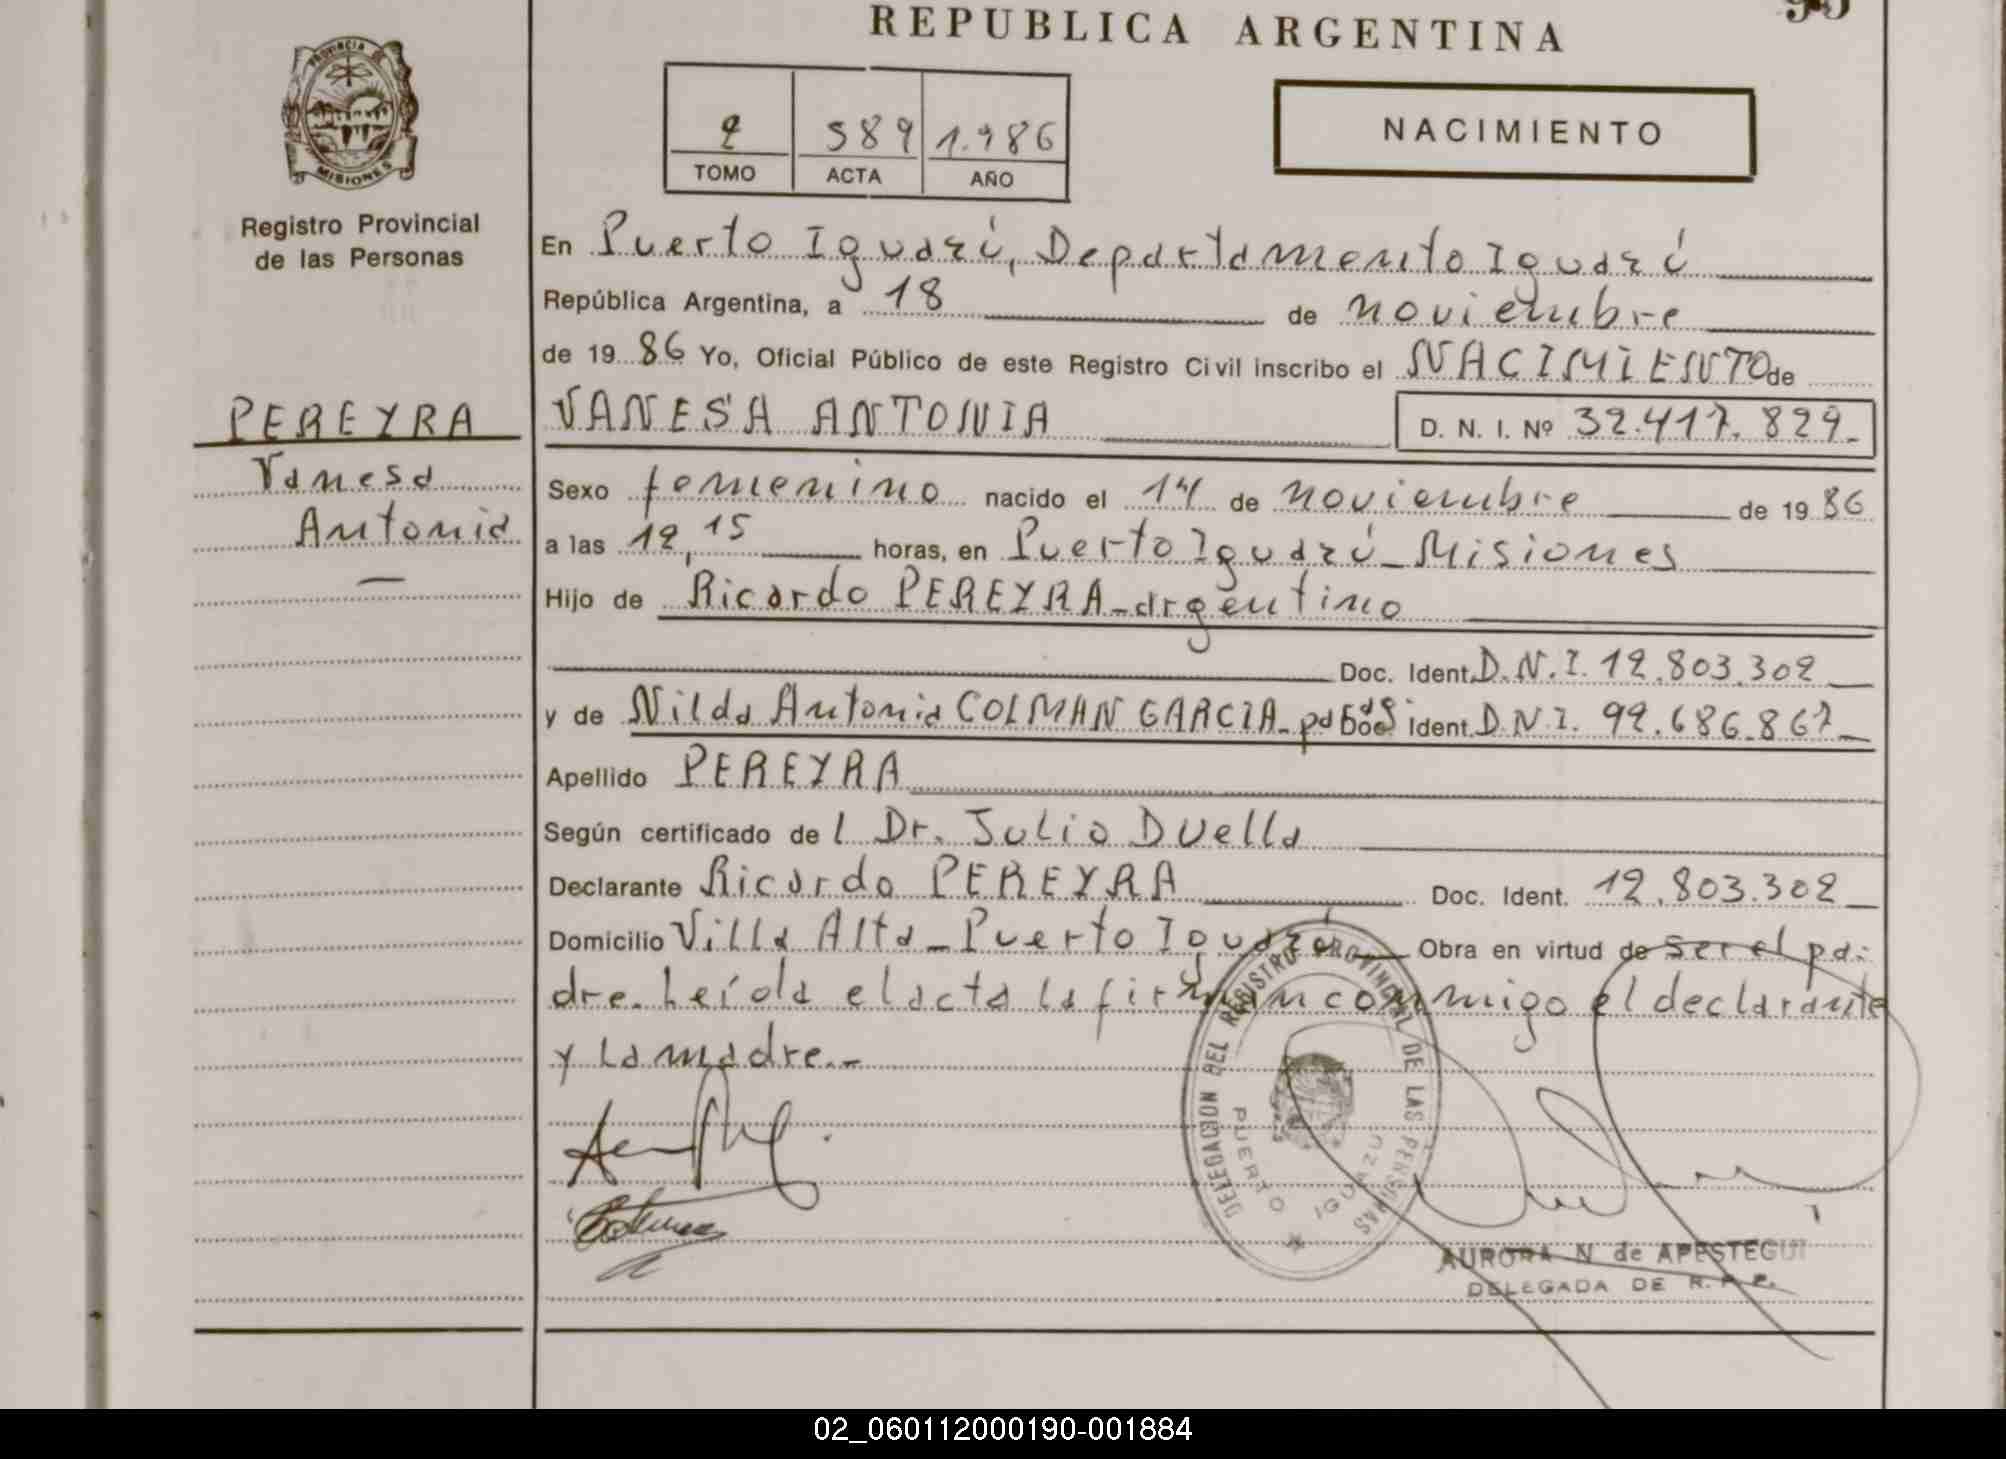 REPUBLICA ARGENTINA
95
PROVINCIA DE
MISIONES
Registro Provincial
de las Personas
2 589 1.986
TOMO ACTA AÑO
NACIMIENTO
En Puerto Iguazú, Departamento Iguazú
República Argentina, a 18 de noviembre
de 1986 Yo, Oficial Público de este Registro Civil inscribo el NACIMIENTO de
PEREYRA
Vanesa
Antonia
VANESA ANTONIA D. N. I. Nº 32.417.829.-
Sexo femenino nacido el 14 de noviembre de 1986
a las 12,15 horas, en Puerto Iguazú - Misiones
Hijo de Ricardo PEREYRA - argentino
Doc. Ident. D.N.I. 12.803.302
y de Nilda Antonia COLMAN GARCIA - Doc. Ident. D.N.I. 92.686.867
Apellido PEREYRA
Según certificado del Dr. Julio Duella
Declarante Ricardo PEREYRA Doc. Ident. 12.803.302
Domicilio Villa Alta - Puerto Iguazú Obra en virtud de ser el pa-
dre. Leída el acta la firman conmigo el declarante
y la madre.-
DELEGACION DEL REGISTRO PROVINCIAL DE LAS PERSONAS
PUERTO IGUAZU
AURORA N de APESTEGUI
DELEGADA DE R. P. P.
02_060112000190-001884